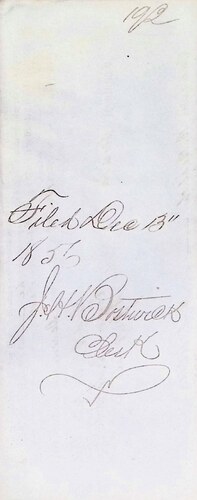 192
Filed Dec 13"
185
J. H. Bostwick
Clerk